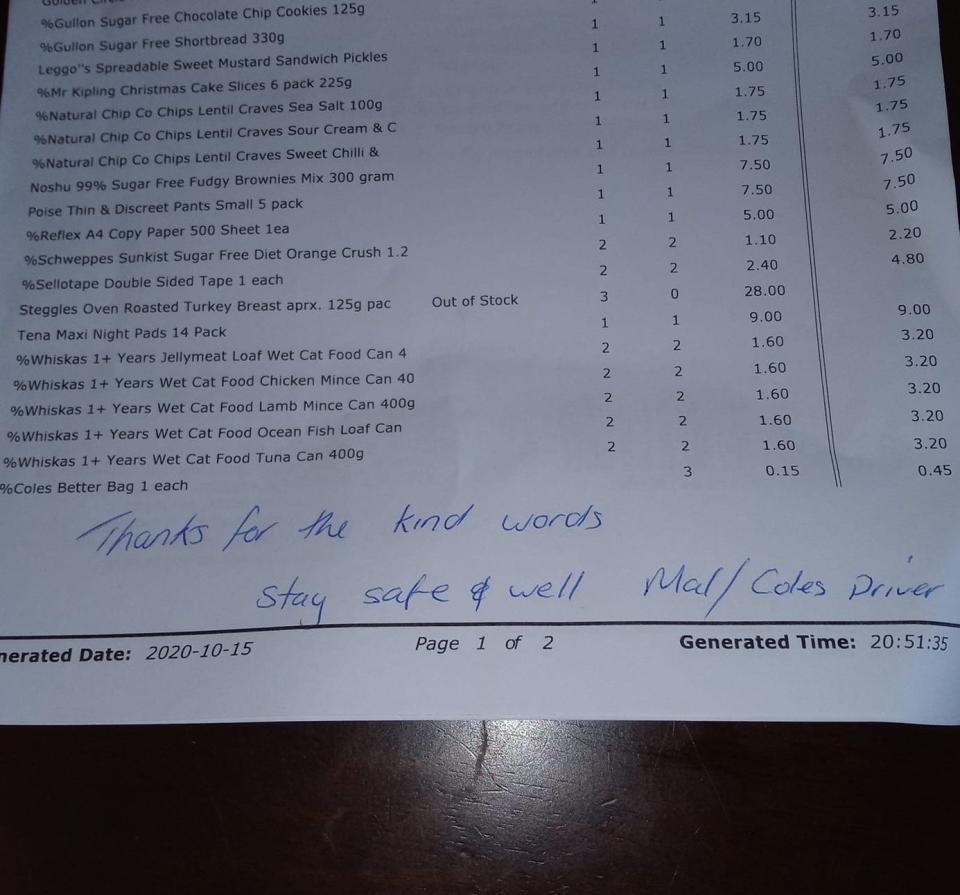 %Gullon Sugar Free Chocolate Chip Cookies 125g
%Gullon Sugar Free Shortbread 330g 1 1 3.15 3.15
Leggo"s Spreadable Sweet Mustard Sandwich Pickles 1 1 1.70 1.70
%Mr Kipling Christmas Cake Slices 6 pack 225g 1 1 5.00 5.00
%Natural Chip Co Chips Lentil Craves Sea Salt 100g 1 1 1.75 1.75
%Natural Chip Co Chips Lentil Craves Sour Cream & C 1 1 1.75 1.75
%Natural Chip Co Chips Lentil Craves Sweet Chilli & 1 1 1.75 1.75
Noshu 99% Sugar Free Fudgy Brownies Mix 300 gram 1 1 7.50 7.50
Poise Thin & Discreet Pants Small 5 pack 1 1 7.50 7.50
%Reflex A4 Copy Paper 500 Sheet 1ea 1 1 5.00 5.00
%Schweppes Sunkist Sugar Free Diet Orange Crush 1.2 2 2 1.10 2.20
%Sellotape Double Sided Tape 1 each 2 2 2.40 4.80
Steggles Oven Roasted Turkey Breast aprx. 125g pac Out of Stock 3 0 28.00
Tena Maxi Night Pads 14 Pack 1 1 9.00 9.00
%Whiskas 1+ Years Jellymeat Loaf Wet Cat Food Can 4 2 2 1.60 3.20
%Whiskas 1+ Years Wet Cat Food Chicken Mince Can 40 2 2 1.60 3.20
%Whiskas 1+ Years Wet Cat Food Lamb Mince Can 400g 2 2 1.60 3.20
%Whiskas 1+ Years Wet Cat Food Ocean Fish Loaf Can 2 2 1.60 3.20
%Whiskas 1+ Years Wet Cat Food Tuna Can 400g 2 2 1.60 3.20
%Coles Better Bag 1 each 3 0.15 0.45
Thanks for the kind words
Stay safe & well Mal/Coles Driver
nerated Date: 2020-10-15 Page 1 of 2 Generated Time: 20:51:35